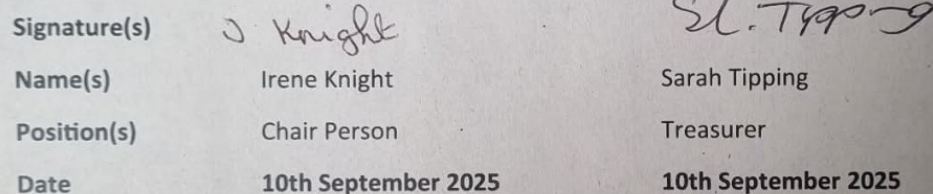 Signature(s) J Knight SL. Tipping
Name(s) Irene Knight Sarah Tipping
Position(s) Chair Person Treasurer
Date 10th September 2025 10th September 2025